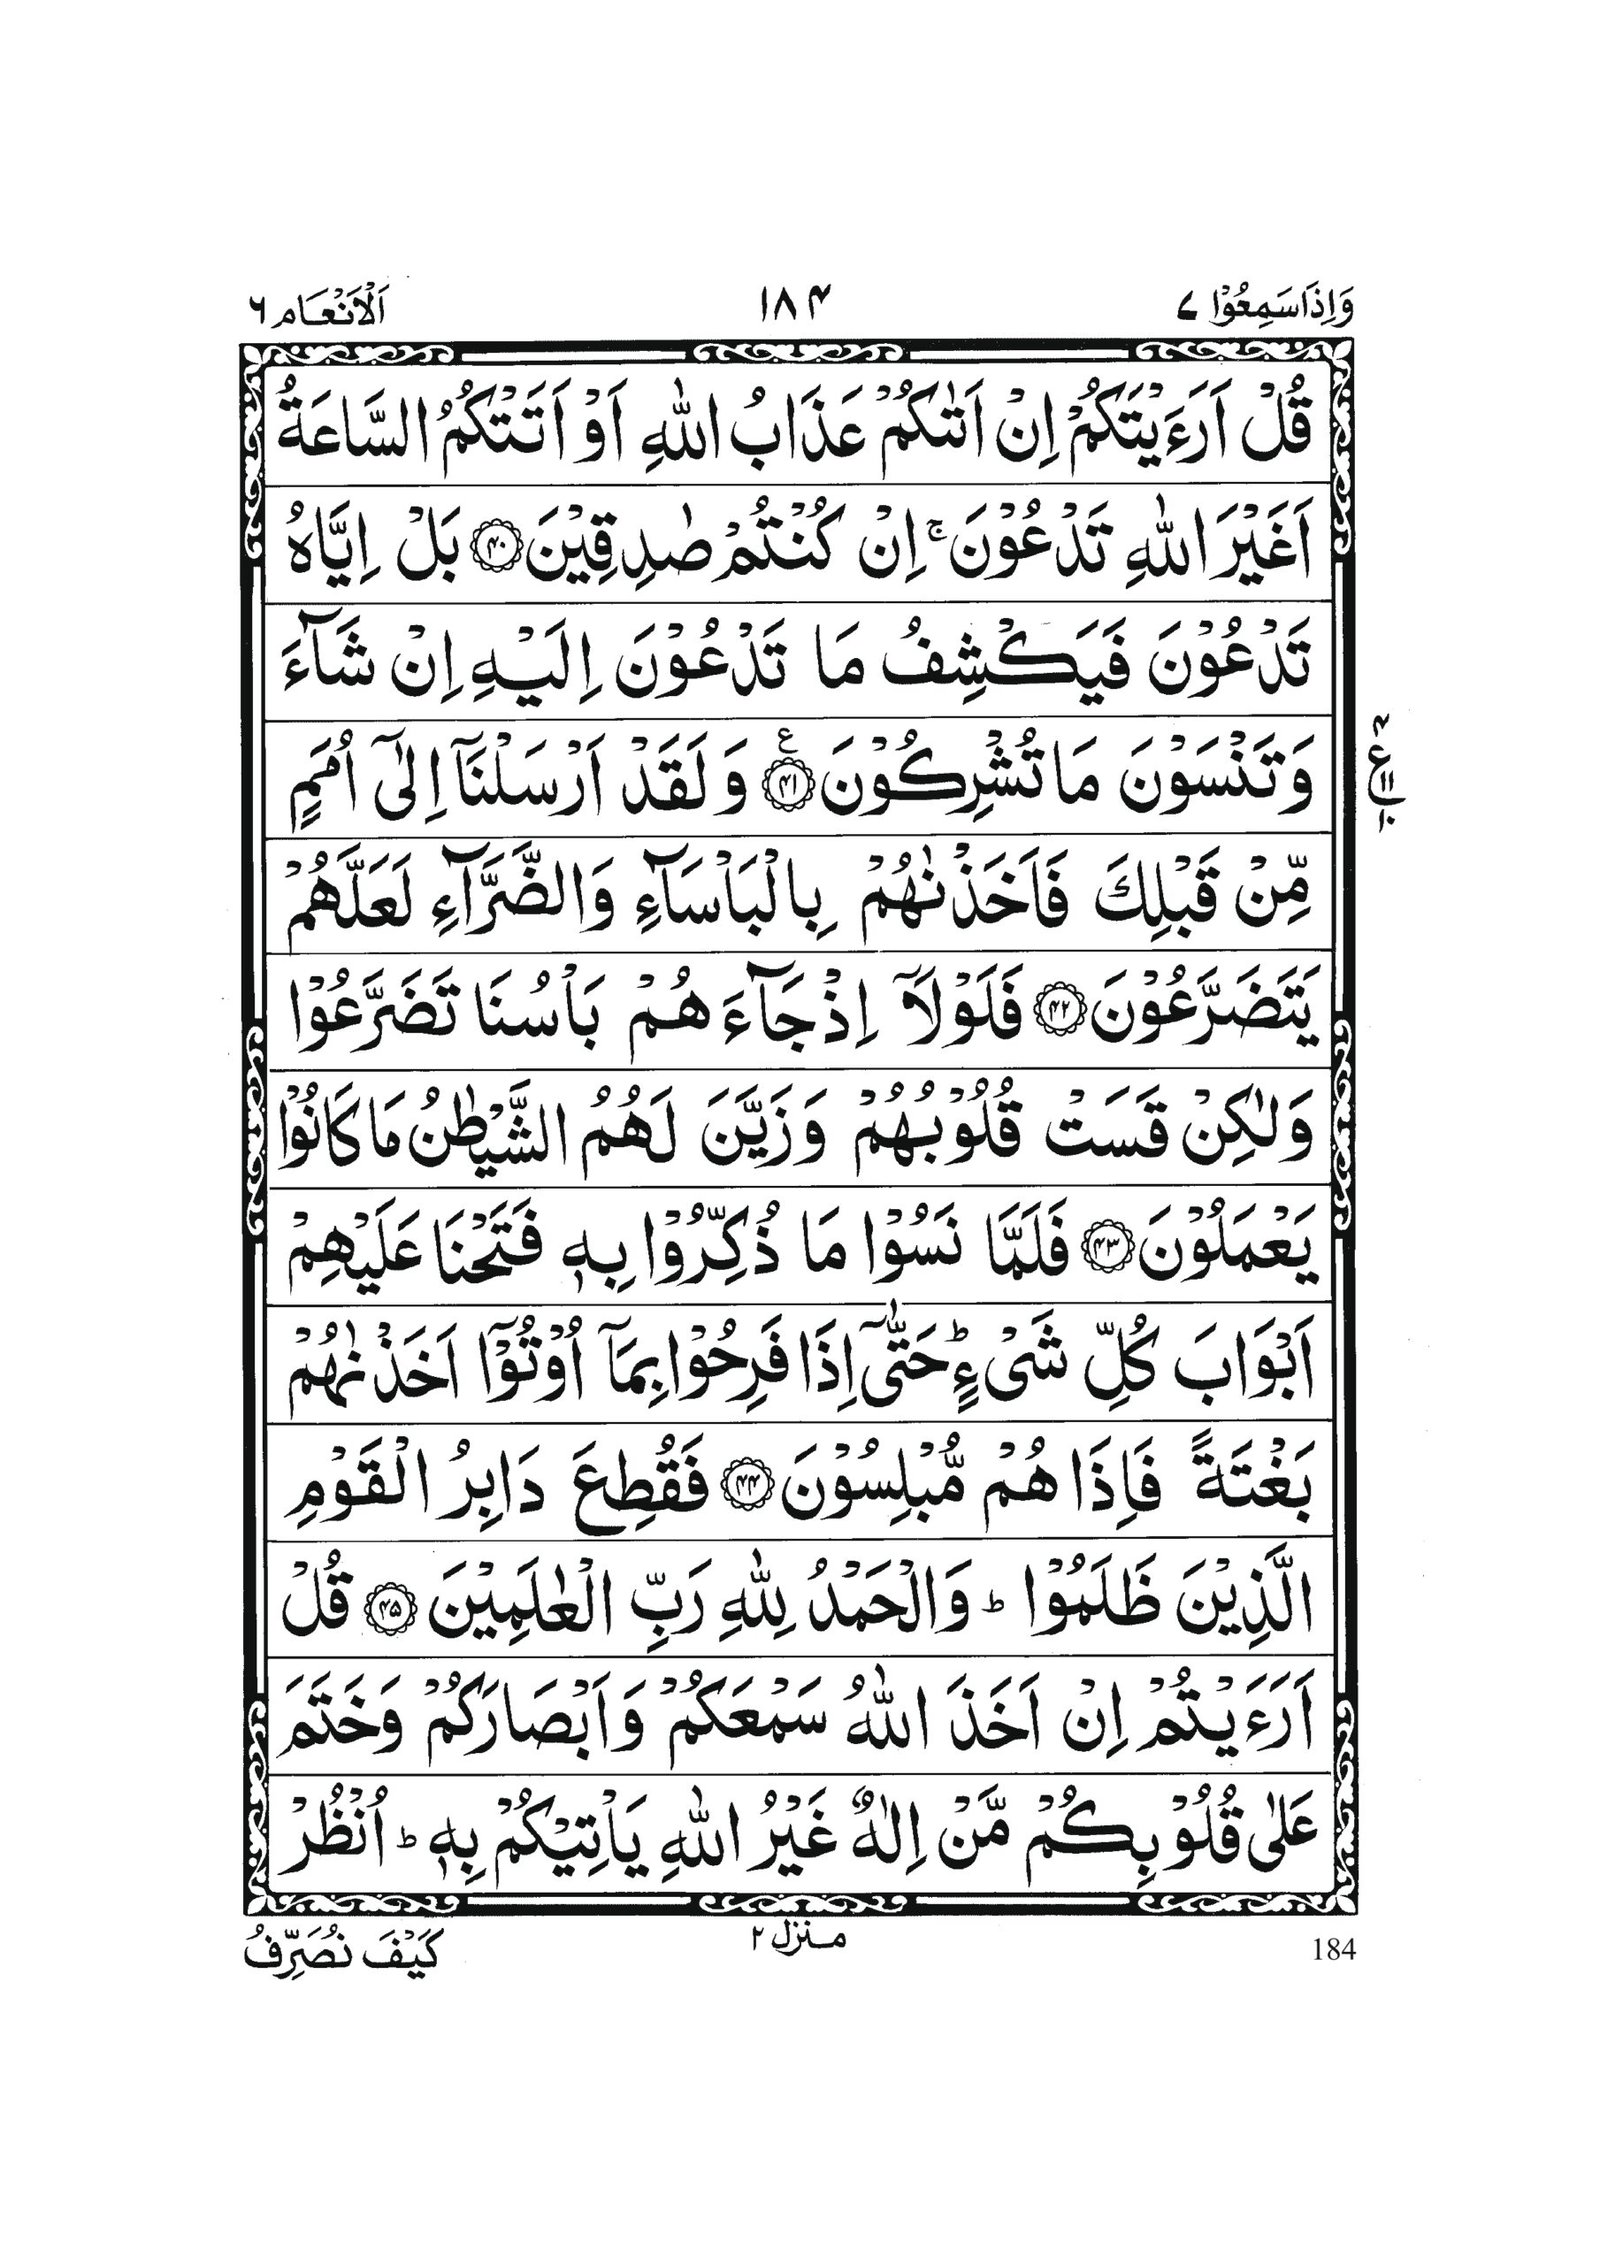 وَاِذَا سَمِعُوْا ۷ ۱۸۴ اَلْاَنْعَام ۶
قُلْ اَرَءَيْتَكُمْ اِنْ اَتٰىكُمْ عَذَابُ اللّٰهِ اَوْ اَتَتْكُمُ السَّاعَةُ
اَغَيْرَ اللّٰهِ تَدْعُوْنَ ۚ اِنْ كُنْتُمْ صٰدِقِيْنَ ﴿۴۰﴾ بَلْ اِيَّاهُ
تَدْعُوْنَ فَيَكْشِفُ مَا تَدْعُوْنَ اِلَيْهِ اِنْ شَآءَ
وَتَنْسَوْنَ مَا تُشْرِكُوْنَ ﴿۴۱﴾ ع وَلَقَدْ اَرْسَلْنَاۤ اِلٰۤى اُمَمٍ
مِّنْ قَبْلِكَ فَاَخَذْنٰهُمْ بِالْبَاْسَآءِ وَالضَّرَّآءِ لَعَلَّهُمْ
يَتَضَرَّعُوْنَ ﴿۴۲﴾ فَلَوْلَاۤ اِذْ جَآءَهُمْ بَاْسُنَا تَضَرَّعُوْا
وَلٰكِنْ قَسَتْ قُلُوْبُهُمْ وَزَيَّنَ لَهُمُ الشَّيْطٰنُ مَا كَانُوْا
يَعْمَلُوْنَ ﴿۴۳﴾ فَلَمَّا نَسُوْا مَا ذُكِّرُوْا بِهٖ فَتَحْنَا عَلَيْهِمْ
اَبْوَابَ كُلِّ شَىْءٍ ؕ حَتّٰۤى اِذَا فَرِحُوْا بِمَاۤ اُوْتُوْۤا اَخَذْنٰهُمْ
بَغْتَةً فَاِذَا هُمْ مُّبْلِسُوْنَ ﴿۴۴﴾ فَقُطِعَ دَابِرُ الْقَوْمِ
الَّذِيْنَ ظَلَمُوْا ؕ وَالْحَمْدُ لِلّٰهِ رَبِّ الْعٰلَمِيْنَ ﴿۴۵﴾ قُلْ
اَرَءَيْتُمْ اِنْ اَخَذَ اللّٰهُ سَمْعَكُمْ وَاَبْصَارَكُمْ وَخَتَمَ
عَلٰى قُلُوْبِكُمْ مَّنْ اِلٰهٌ غَيْرُ اللّٰهِ يَاْتِيْكُمْ بِهٖ ؕ اُنْظُرْ
184 منزل ۲ كَيْفَ نُصَرِّفُ